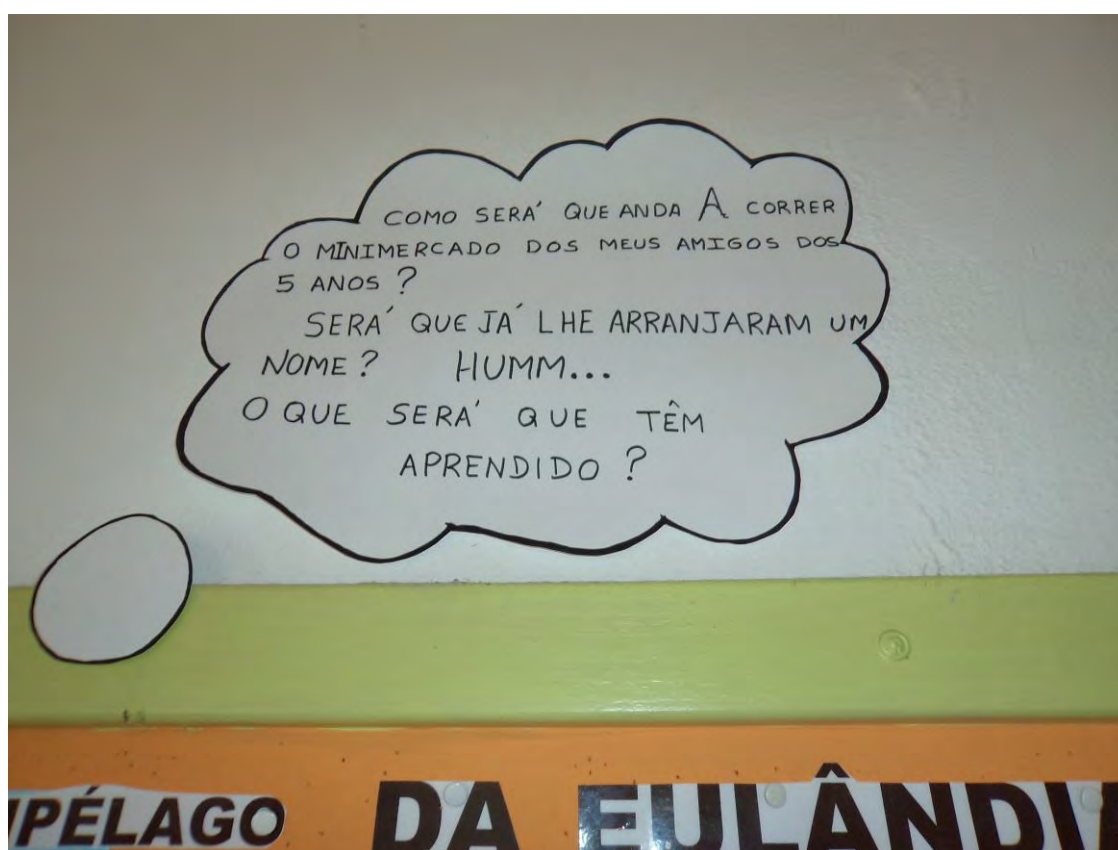 COMO SERÁ QUE ANDA A CORRER
O MINIMERCADO DOS MEUS AMIGOS DOS
5 ANOS ?
SERÁ QUE JÁ LHE ARRANJARAM UM
NOME ? HUMM...
O QUE SERÁ QUE TÊM
APRENDIDO ?
IPÉLAGO DA EULÂNDI